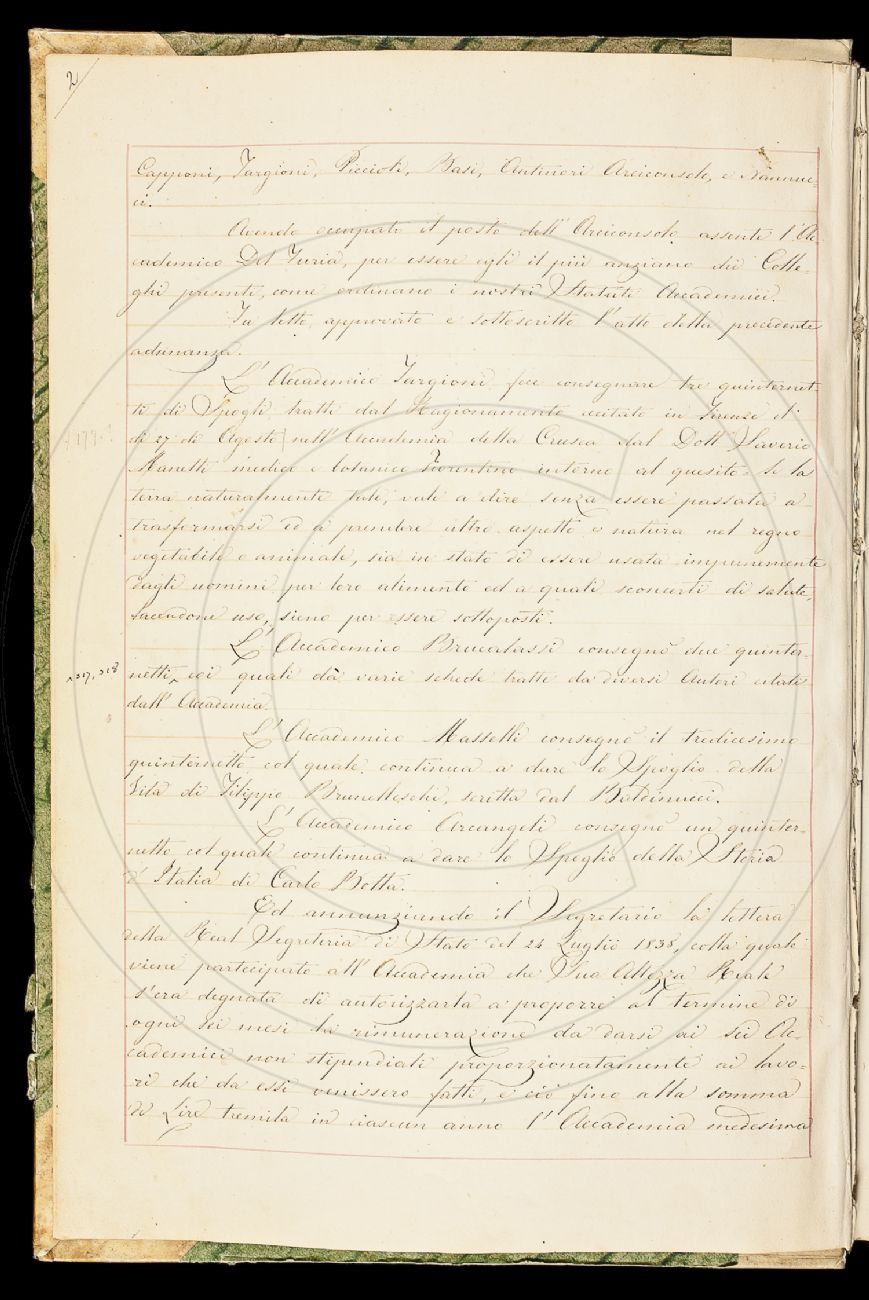 2
Capponi, Targioni, Piccioli, Basi, Antinori Arciconsolo, e Nannuc=
ci.
Avendo occupato il posto dell' Arciconsolo assente l'Ac
cademico Del Furia, per essere egli il più anziano dei Colle=
ghi presenti, come ordinano i nostri Statuti Accademici.
Fu letto, approvato e sottoscritto l'atto della precedente
adunanza.
L' Accademico Targioni fece consegnare tre quinternet=
ti di Spogli tratti dal Ragionamento recitato in Firenze il
di 27 di Agosto nell' Accademia della Crusca dal Dott. Saverio
Manetti medico e botanico Fiorentino intorno al quesito= Se la
terra naturalmente tale, vale a dire senza essere passata a
trasformarsi ed a prendere altro aspetto e natura nel regno
vegetabile o animale, sia in stato di essere usata impunemente
dagli uomini per loro alimento ed a quali sconcerti di salute,
facendone uso, sieno per essere sottoposti.
L' Accademico Brucalassi consegnò due quinter=
netti, coi quali dà varie schede tratte da diversi Autori citati
217, 218
dall' Accademia.
L' Accademico Masselli consegnò il tredicesimo
quinternetto col quale continua a dare lo Spoglio della
Vita di Filippo Brunelleschi, scritta dal Baldinucci.
L' Accademico Arcangeli consegnò un quinter=
netto col quale continua a dare lo Spoglio della Storia
d' Italia di Carlo Botta.
Ed annunziando il Segretario la lettera
della Real Segreteria di Stato del 24 Luglio 1838, colla quale
viene partecipato all' Accademia che Sua Altezza Reale
s'era degnata di autorizzarla a proporre al termine di
ogni sei mesi la rimunerazione da darsi ai sei Ac=
cademici non stipendiati proporzionatamente ai lavo=
ri che da essi venissero fatti, e ciò fino alla somma
di Lire tremila in ciascun anno l' Accademia medesima